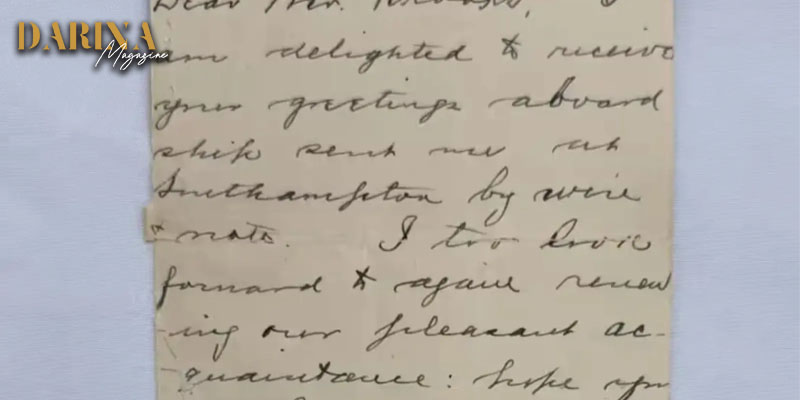 DARIXA
Magazine
Dear Mr. I
am delighted to receive
your greetings aboard
ship sent me at
Southampton by wire
& note. I too look
forward to again renew
-ing our pleasant ac-
quaintance: hope you